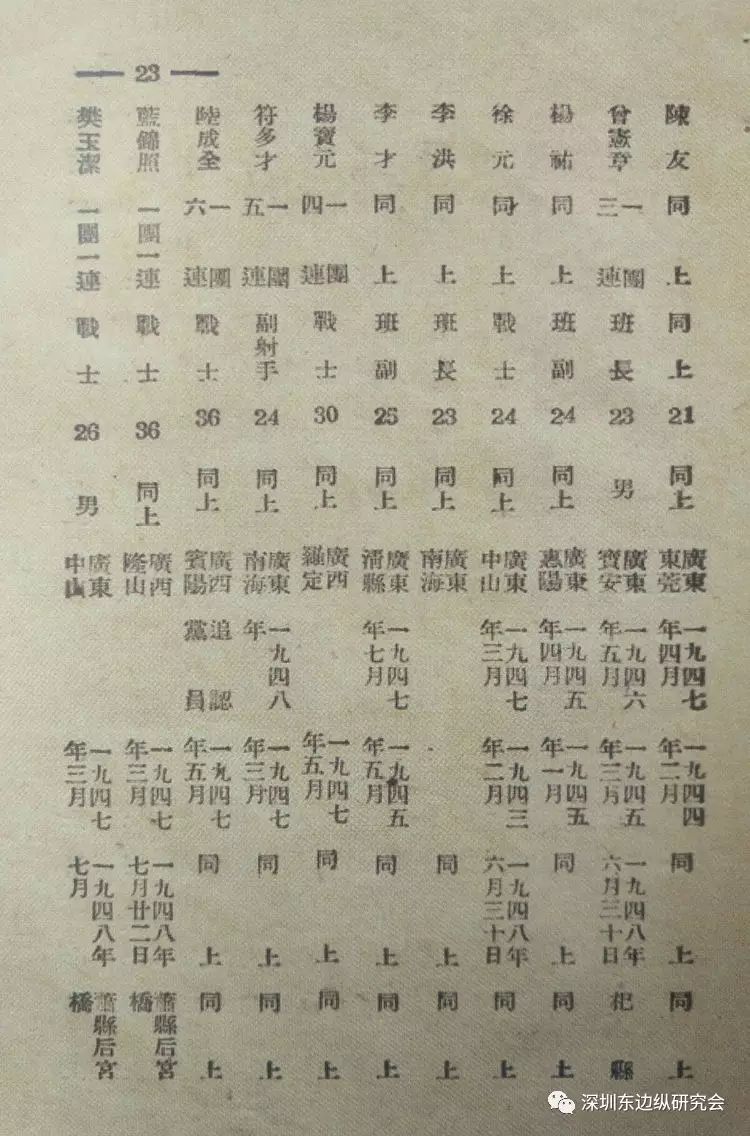 23
陳友 同上 同上 21 同上 廣東東莞 一九四七年四月 一九四四年二月 同上 同上
曾憲章 一團三連 班長 23 男 廣東寶安 一九四六年五月 一九四五年三月 一九四八年六月三十日 杞縣
楊祐 同上 班副 24 同上 廣東惠陽 一九四五年四月 一九四五年一月 同上 同上
徐元 同上 戰士 24 同上 廣東中山 一九四七年三月 一九四三年二月 一九四八年六月三十日 同上
李洪 同上 班長 23 同上 廣東南海 同上 同上
李才 同上 班副 25 同上 廣東清縣 一九四七年七月 一九四五年五月 同上 同上
楊寶元 一團四連 戰士 30 同上 廣西羅定 一九四七年五月 同上 同上
符多才 一團五連 副射手 24 同上 廣東南海 一九四八年 一九四七年三月 同上 同上
陸成全 一團六連 戰士 36 同上 廣西賓陽 追認黨員 一九四七年五月 同上 同上
藍錦照 一團一連 戰士 36 同上 廣西隆山 一九四七年三月 一九四八年七月廿二日 蕭縣后宮橋
樊玉潔 一團一連 戰士 26 男 廣東中山 一九四七年三月 一九四八年七月 蕭縣后宮橋
深圳东边纵研究会